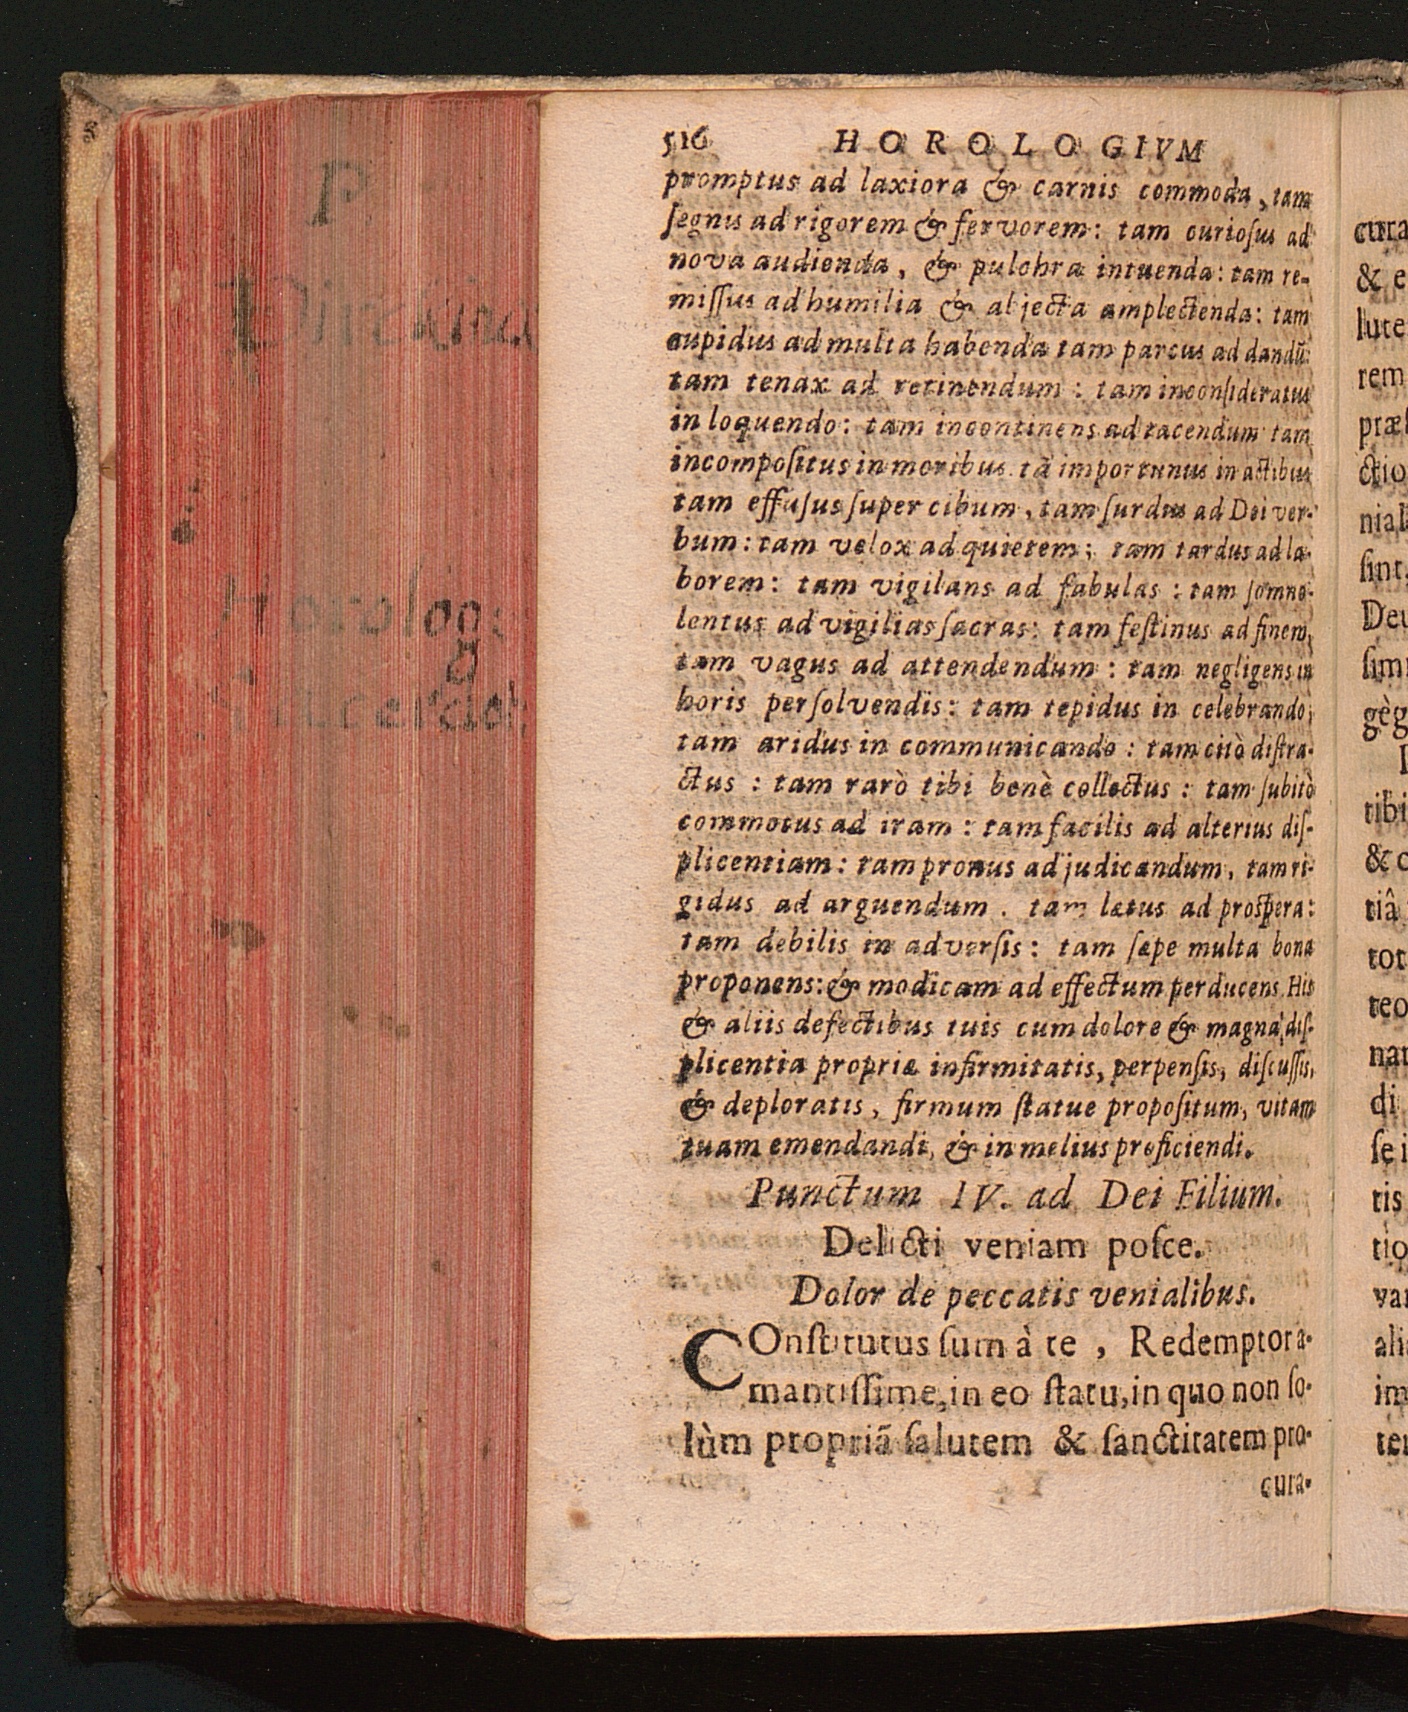 516 HOROLOGIVM
promptus ad laxiora & carnis commoda, tam
ſegnis ad rigorem & fervorem: tam curioſus ad
nova audienda, & pulchra intuenda: tam re-
miſſus ad humilia & abjecta amplectenda: tam
cupidus ad multa habenda tam parcus ad dandũ:
tam tenax ad retinendum: tam inconſideratus
in loquendo: tam incontinens ad tacendum tam
incompoſitus in moribus. tã importunus in actibus
tam effuſus ſuper cibum, tam ſurdus ad Dei ver-
bum: tam velox ad quietem; tam tardus ad la-
borem: tam vigilans ad fabulas: tam ſomno-
lentus ad vigilias ſacras: tam feſtinus ad finem,
tam vagus ad attendendum: tam negligens in
horis perſolvendis: tam tepidus in celebrando,
tam aridus in communicando: tam citò diſtra-
ctus: tam rarò tibi benè collectus: tam ſubitò
commotus ad iram: tam facilis ad alterius diſ-
plicentiam: tam pronus ad judicandum, tam ri-
gidus ad arguendum. tam lætus ad proſpera:
tam debilis in adverſis: tam ſæpe multa bona
proponens: & modicam ad effectum perducens. His
& aliis defectibus tuis cum dolore & magna diſ-
plicentia propriæ infirmitatis, perpenſis, diſcuſſis,
& deploratis, firmum ſtatue propoſitum, vitam
tuam emendandi, & in melius proficiendi.
Punctum IV. ad Dei Filium.
Delicti veniam poſce.
Dolor de peccatis venialibus.
COnſtitutus ſum à te, Redemptor a-
mantiſſime, in eo ſtatu, in quo non ſo-
lùm propriã ſalutem & ſanctitatem pro-
cura-
& e
lute
rem
ctio
ſint,
Deu
tibi
& c
tiâ
tot
teo
di
ſe i
tis
tio
P
Horolog